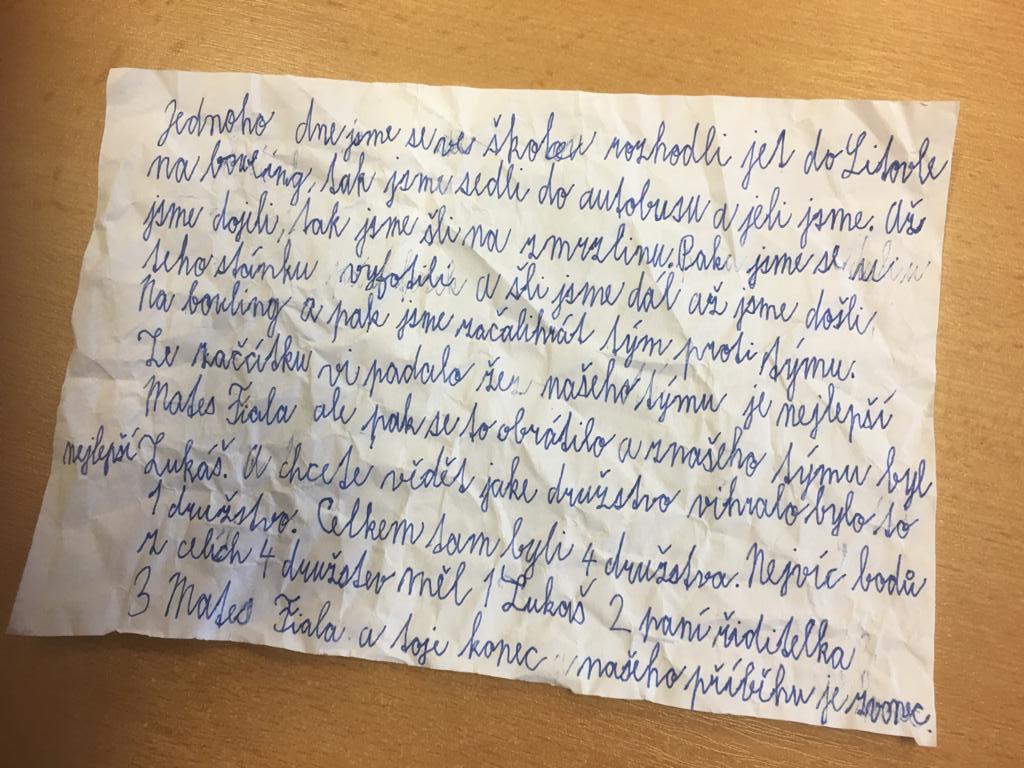 Jednoho dne jsme se ve škole rozhodli jet do Litovle
na bowling, tak jsme sedli do autobusu a jeli jsme. Až
jsme dojili, tak jsme šli na zmrzlinu. Pak jsme se
teho stánku vyfotili a šli jsme dál až jsme došli
Na bowling a pak jsme začali hrát tým proti týmu.
Ze začčítku vi padalo že z našeho týmu je nejlepší
Mates Fiala ale pak se to obrátilo a z našeho týmu byl
nejlepší Lukáš. A chcete vědět jake družstvo vihralo bylo to
1 družstvo. Celkem tam byli 4 družstva. Nejvíc bodů
z celích 4 družstev měl 1 Lukáš 2 paní řiditelka
3 Mates Fiala a toje konec našeho příběhu je zvonec.